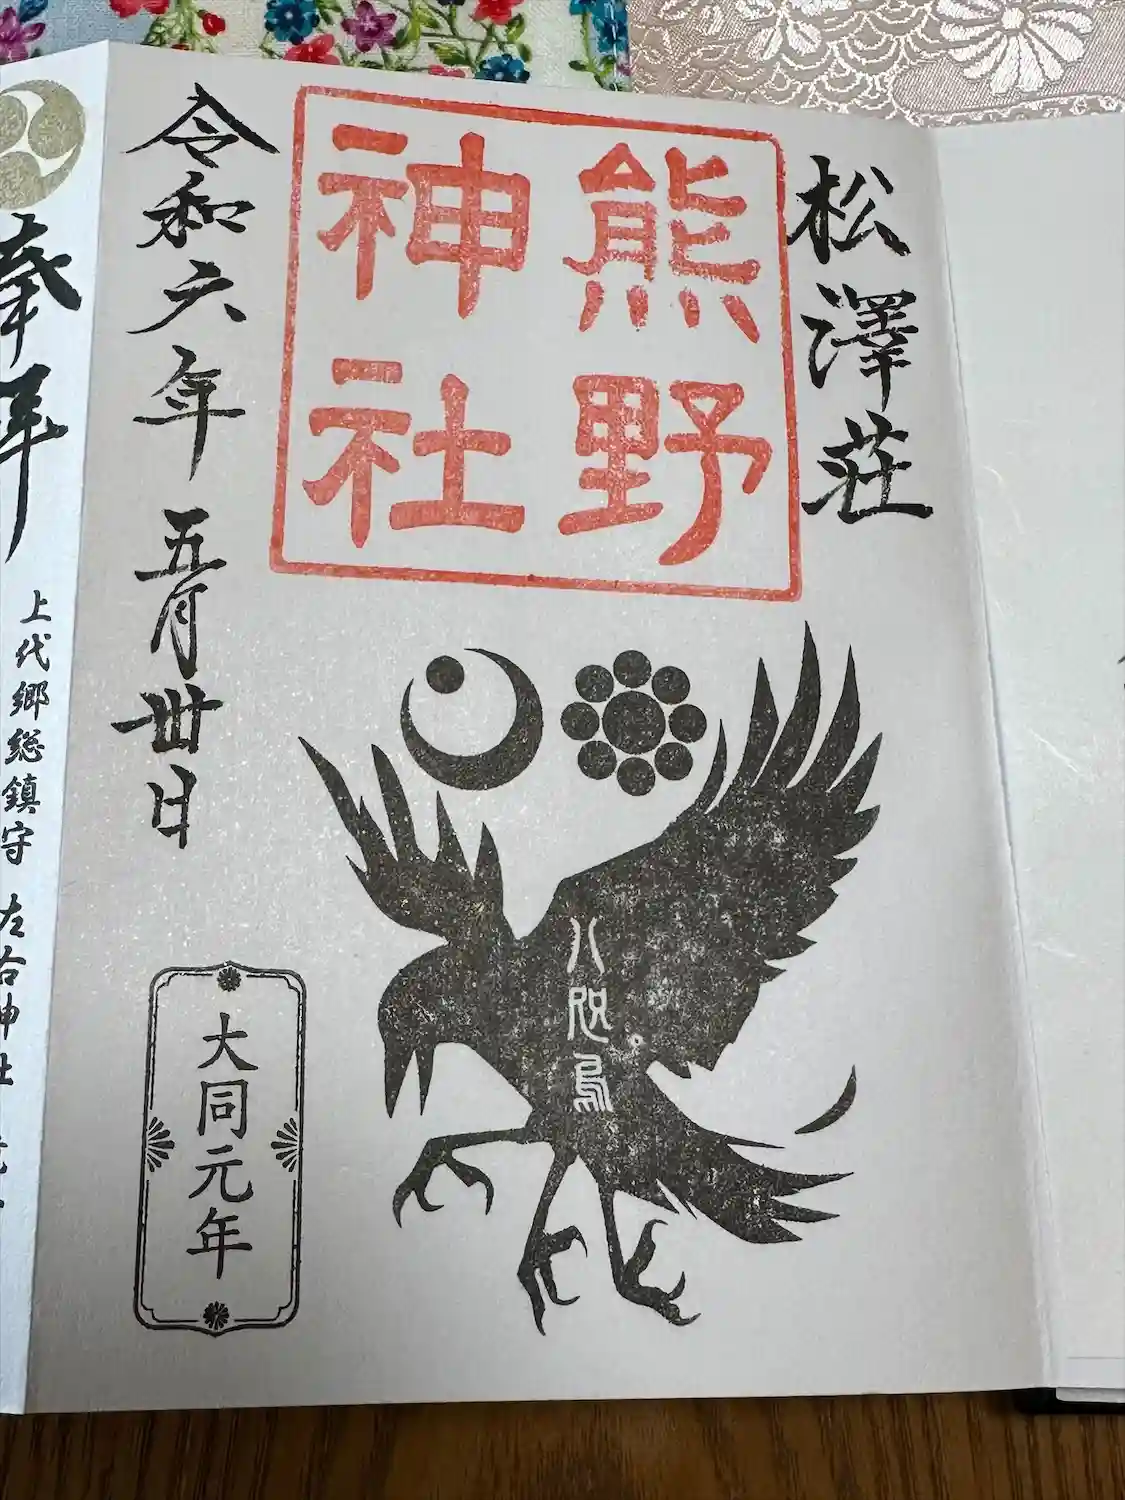 松澤荘
熊野
神社
八咫烏
令和六年五月卅日
大同元年
奉拝
上代郷総鎮守 左右神社